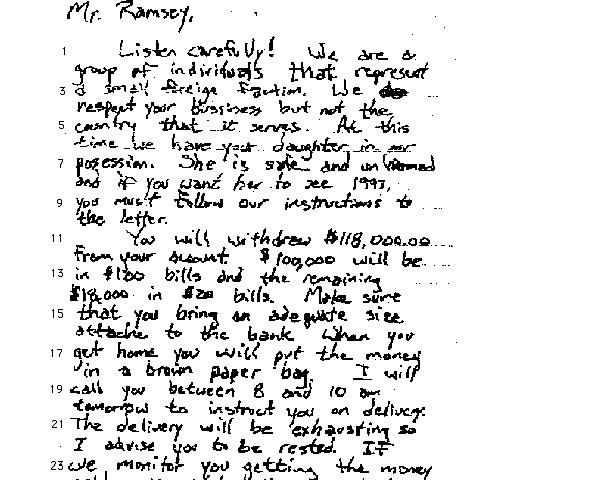 Mr. Ramsey,
1 Listen carefully! We are a
group of individuals that represent
3 a small foreign faction. We
respect your bussiness but not the
5 country that it serves. At this
time we have your daughter in our
7 posession. She is safe and unharmed
and if you want her to see 1997,
9 you must follow our instructions to
the letter.
11 You will withdraw $118,000.00
from your account. $100,000 will be
13 in $100 bills and the remaining
$18,000 in $20 bills. Make sure
15 that you bring an adequate size
attache to the bank. When you
17 get home you will put the money
in a brown paper bag. I will
19 call you between 8 and 10 am
tomorrow to instruct you on delivery.
21 The delivery will be exhausting so
I advise you to be rested. If
23 we monitor you getting the money